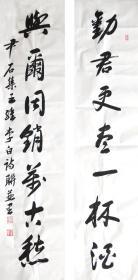 勸君更盡一杯酒
與爾同銷萬古愁
尹石集王維李白詩聯並書